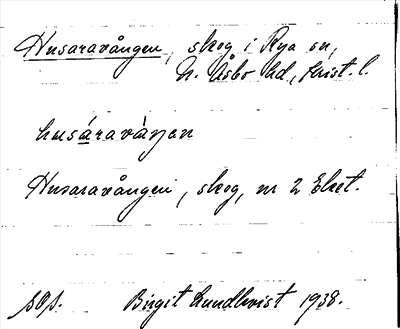 Husaravången, skog i Rya sn,
N. Åsbo hd, Krist. l.
husáravàŋan
Husaravången, skog, nr 2 Eket.
sOp. Birgit Lundkvist 1938.